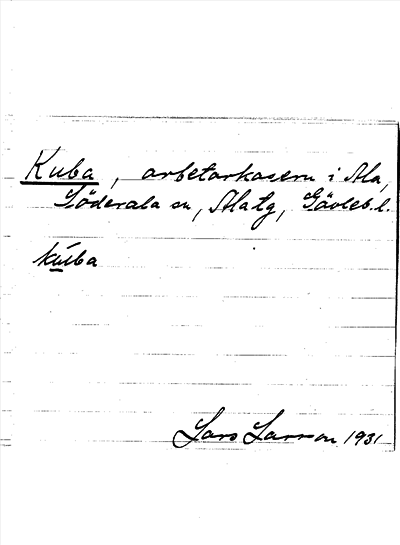 Kuba, arbetarkasern i Ala,
Söderala sn, Ala tg, Gävleb. l.
kúba
Lars Larsson 1931